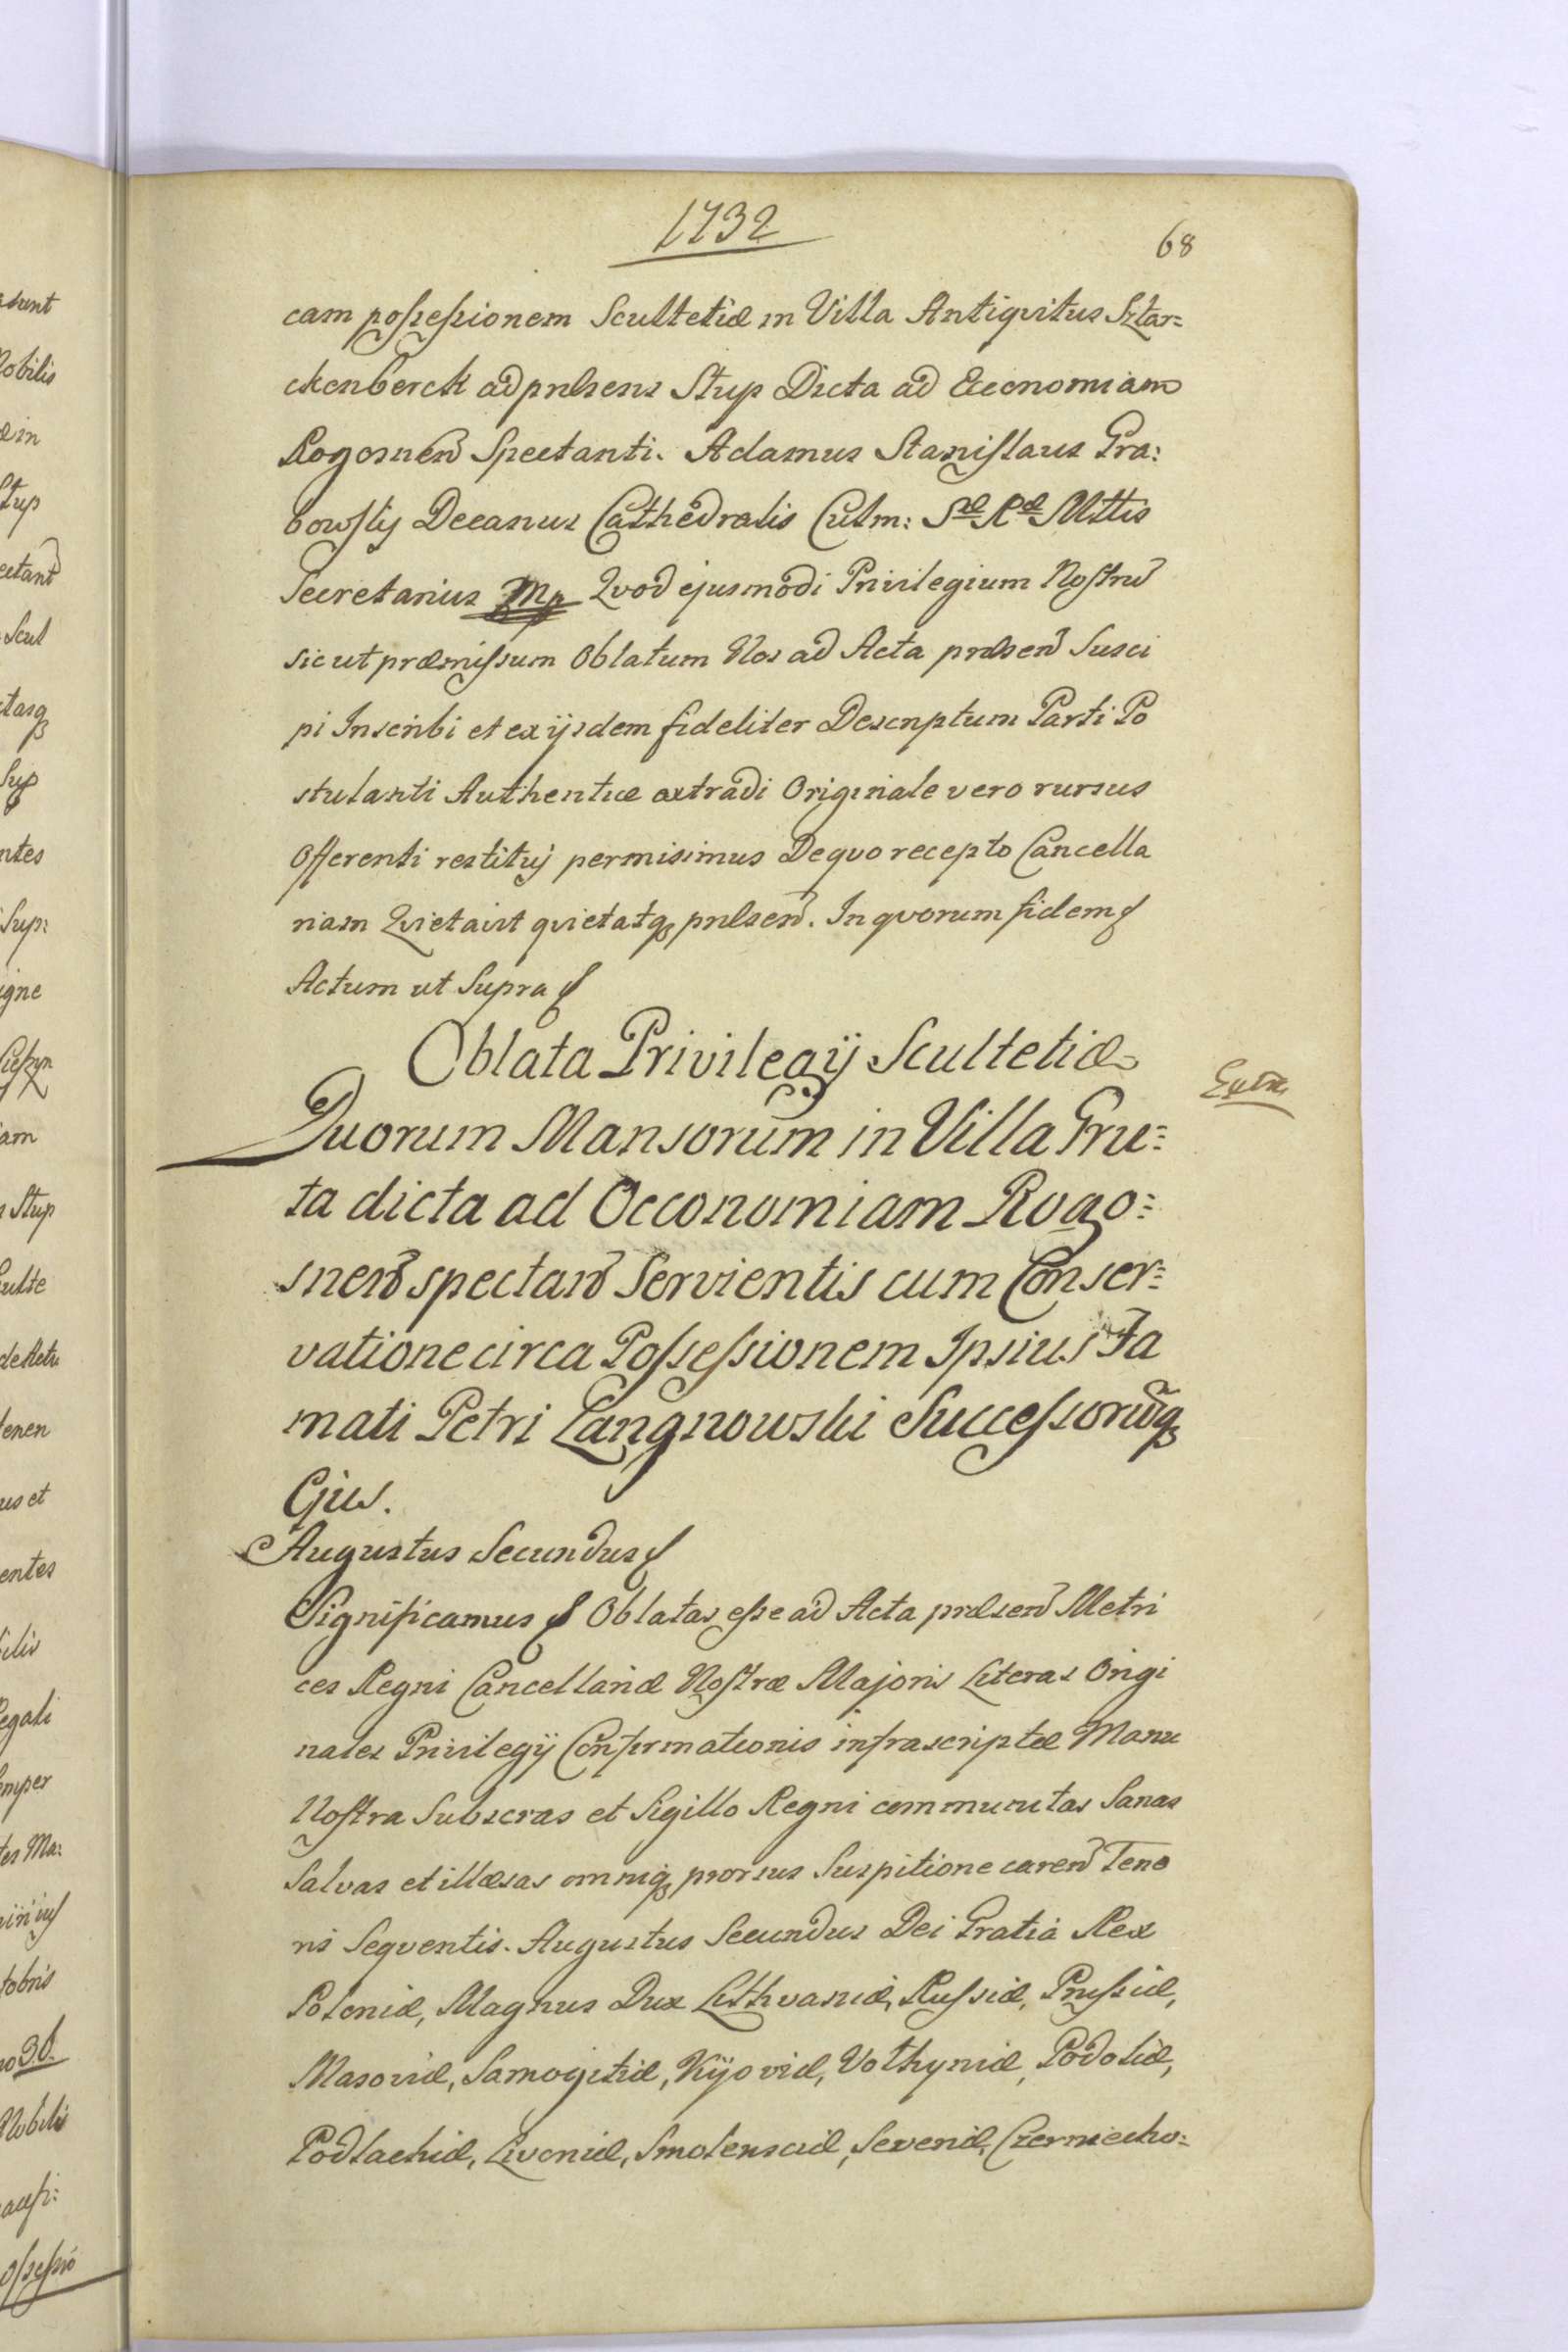 1732
68
cam possessionem Scultetiæ in Villa Antiqvitus Sztar=
ckenberck ad prælsens Stup Dicta ad Œconomiam
Rogosnen̄ Spectanti. Adamus Stanislaus Gra:
bowsky Decanus Cathedralis Culm: Sæ Ræ Mttis
Secretarius Mp Qvod ejusmodi Privilegium Nostrū
sicut præmissum Oblatum Nos ad Acta præsen̄ Susci
pi Inscribi et ex ijsdem fideliter Descriptum Parti Po
stulanti Authenticæ extradi Originale vero rursus
Offerenti restituj permisimus De qvo recepto Cancella
riam Qvietavit qvietatq præsen̄. In qvorum fidem
Actum ut Supra
Oblata Privilegij Scultetiæ
Duorum Mansorum in Villa Gru=
ta dicta ad Oeconomiam Rogo=
snen̄ spectan̄ Servientis cum Conser=
vatione circa Possessionem Ipsius Fa
mati Petri Langnowski Successorūq
Ejus.
Augustus Secundus
Significamus Oblatas esse ad Acta præsen̄ Metri
ces Regni Cancellariæ Nostræ Majoris Literas Origi
nales Privilegij Confirmationis infrascriptæ Manu
Nostra Subscras et Sigillo Regni communitas Sanas
Salvas et illæsas omniq prorsus Suspitione caren̄ Teno
ris Seqventis. Augustus Secundus Dei Gratia Rex
Poloniæ, Magnus Dux Lithvaniæ, Russiæ, Prussiæ,
Masoviæ, Samogitiæ, Kijoviæ, Volhyniæ, Podoliæ,
Podlachiæ, Livoniæ, Smolensciæ, Severiæ, Czerniecho=